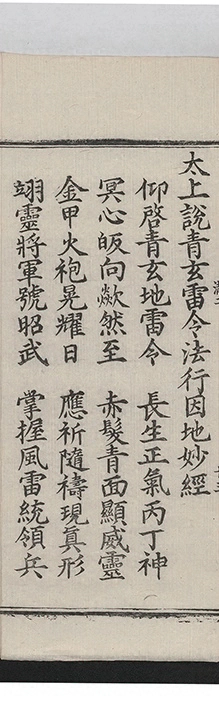 太上說青玄雷令法行因地妙經
仰啓青玄地雷令　長生正氣丙丁神
冥心皈向歘然至　赤髮青面顯威靈
金甲火袍晃耀日　應祈隨禱現真形
翊靈將軍號昭武　掌握風雷統領兵